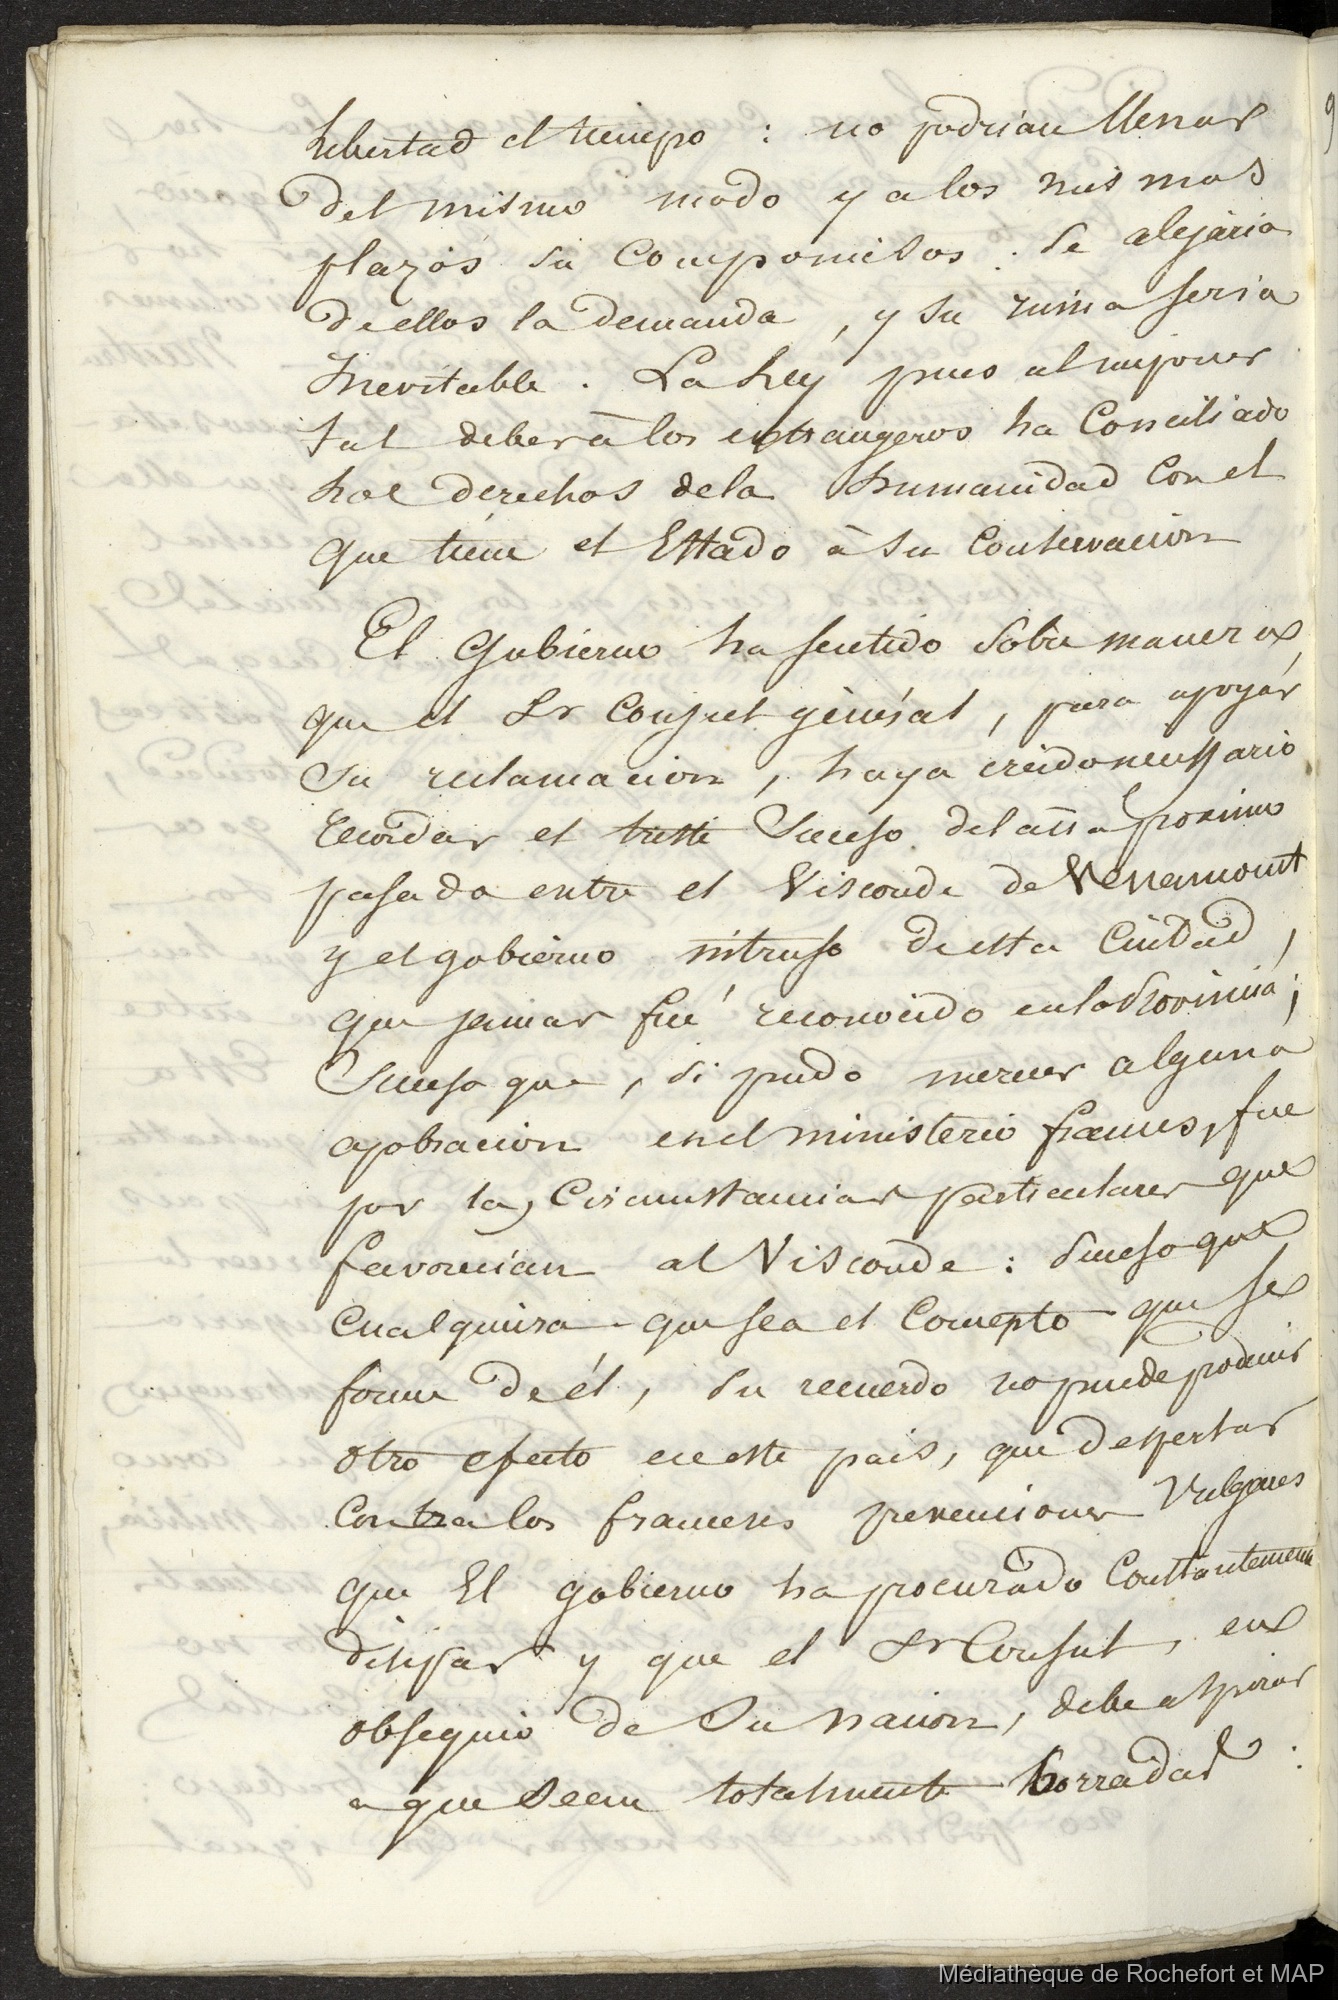 libertad el tiempo : no podrian llenar
del mismo modo y a los mismos
plazos su componisos : se alejària
de ellos la demanda , y su ruina seria
Inevitable . La Ley pues al imponer
tal deber à los extrangeros ha Conciliado
los derechos dela humanidad Con el
que tiene el Estado à su Conservacion
El Gobierno ha sentido sobre manera
que el Sr Consul général , para apoyar
su reclamacion , haya creido necessario
recordar el triste Suceso del año proximo
pasado entre el Visconde de Venamont
y el gobierno intruso de esta Ciudad ,
que jamas fué reconocido en la Provincia ;
Suceso que , si pudo merecer alguna
apobracion en el ministerio frances , fue
por las Circunstancias particulares que
favorecian al Visconde : suceso que
Cualquiera que sea el Concepto que se
forme de él , su recuerdo no puede producir
otro efecto en este pais , que despertar
Contra los franceses prevenciones Vulgares
que El gobierno ha procurado Constantemente
disipar y que el Sr Consul , en
obsequio de su nacion , debe aspirar
a que sean totalmente borradas .
Médiathèque de Rochefort et MAP